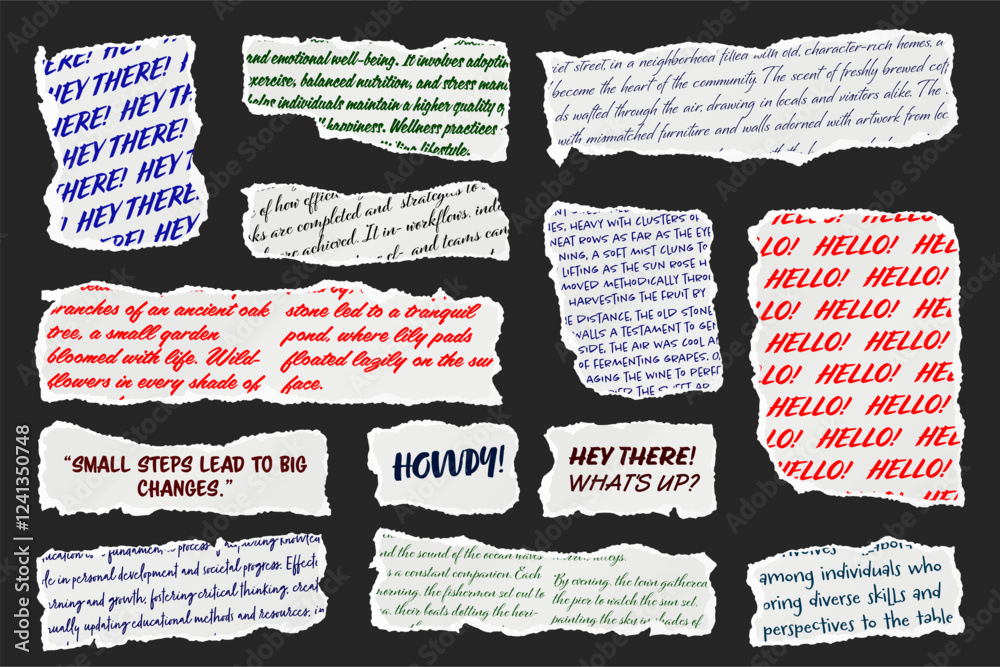 HEY THERE! HEY
HEY THERE! HEY TH
HERE! HEY THERE!
HEY THERE! HEY T
THERE! HEY THERE!
HEY THERE! HEY
HERE! HEY THERE!
and emotional well-being. It involves adoptin
exercise, balanced nutrition, and stress man
helps individuals maintain a higher quality o
happiness. Wellness practices
lifestyle.
iet street, in a neighborhood filled with old, character-rich homes, a
become the heart of the community. The scent of freshly brewed cof
ds wafted through the air, drawing in locals and visitors alike. The
with mismatched furniture and walls adorned with artwork from loc
of how offici strategies to
ks are completed and workflows, inde
are achieved. It in- and teams can
NES, HEAVY WITH CLUSTERS OF
NEAT ROWS AS FAR AS THE EYE
NING, A SOFT MIST CLUNG TO
LIFTING AS THE SUN ROSE H
MOVED METHODICALLY THROU
HARVESTING THE FRUIT BY
E DISTANCE, THE OLD STONE
WALLS A TESTAMENT TO GEN
SIDE, THE AIR WAS COOL A
OF FERMENTING GRAPES, O
AGING THE WINE TO PERF
THE SWEET AR
LO! HELLO! HEL
HELLO! HELLO!
LO! HELLO! HEL
HELLO! HELLO!
LO! HELLO! HEL
HELLO! HELLO!
LO! HELLO! HEL
HELLO! HELLO!
LO! HELLO! HEL
HELLO! HELLO!
branches of an ancient oak
tree, a small garden
bloomed with life. Wild-
flowers in every shade of
stone led to a tranquil
pond, where lily pads
floated lazily on the sur
face.
“SMALL STEPS LEAD TO BIG
CHANGES.”
HOWDY!
HEY THERE!
WHAT'S UP?
ucation is a fundamental process of acquiring knowled
le in personal development and societal progress. Effecti
rning and growth, fostering critical thinking, creat
ually updating educational methods and resources, in
nd the sound of the ocean waves
s a constant companion. Each
morning, the fishermen set out to
a, their boats dotting the hori-
By evening, the town gathered
the pier to watch the sun set,
painting the sky in shades of
involves
among individuals who
oring diverse skills and
perspectives to the table
Adobe Stock | #1241350748